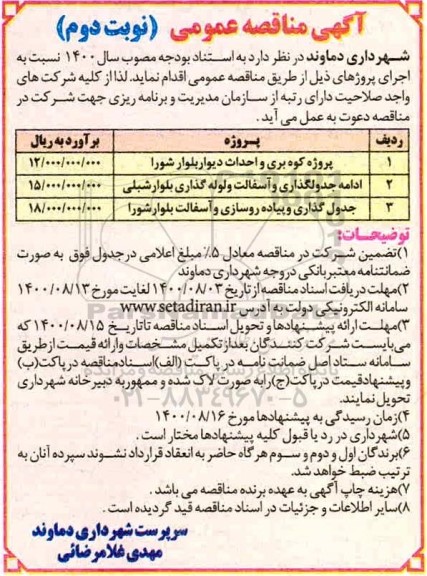 آگهی مناقصه عمومی (نوبت دوم)
شهرداری دماوند در نظر دارد به استناد بودجه مصوب سال ۱۴۰۰ نسبت به
اجرای پروژهای ذیل از طریق مناقصه عمومی اقدام نماید. لذا از کلیه شرکت های
واجد صلاحیت دارای رتبه از سازمان مدیریت و برنامه ریزی جهت شرکت در
مناقصه دعوت به عمل می آید.
ردیف پروژه برآورد به ریال
۱ پروژه کوه بری و احداث دیوار بلوار شورا ۱۲/۰۰۰/۰۰۰/۰۰۰
۲ ادامه جدولگذاری و آسفالت ولوله گذاری بلوار شبلی ۱۵/۰۰۰/۰۰۰/۰۰۰
۳ جدول گذاری و پیاده روسازی و آسفالت بلوار شورا ۱۸/۰۰۰/۰۰۰/۰۰۰
توضیحات:
۱)تضمین شرکت در مناقصه معادل ۵٪ مبلغ اعلامی در جدول فوق به صورت
ضمانتنامه معتبر بانکی در وجه شهرداری دماوند
۲)مهلت دریافت اسناد مناقصه از تاریخ ۱۴۰۰/۰۸/۰۳ لغایت مورخ ۱۴۰۰/۰۸/۱۳
سامانه الکترونیکی دولت به آدرس www.setadiran.ir
۳)مهلت ارائه پیشنهادها و تحویل اسناد مناقصه تا تاریخ ۱۴۰۰/۰۸/۱۵ که
می بایست شرکت کنندگان بعد از تکمیل مشخصات و ارائه قیمت از طریق
سامانه ستاد اصل ضمانت نامه در پاکت (الف) اسناد مناقصه در پاکت(ب)
و پیشنهاد قیمت در پاکت(ج) را به صورت لاک شده و ممهور به دبیرخانه شهرداری
تحویل نمایند.
۴)زمان رسیدگی به پیشنهادها مورخ ۱۴۰۰/۰۸/۱۶
۵)شهرداری در رد یا قبول کلیه پیشنهادها مختار است.
۶)برندگان اول و دوم و سوم هرگاه حاضر به انعقاد قرارداد نشوند سپرده آنان به
ترتیب ضبط خواهد شد.
۷)هزینه چاپ آگهی به عهده برنده مناقصه می باشد.
۸)سایر اطلاعات و جزئیات در اسناد مناقصه قید گردیده است.
سرپرست شهرداری دماوند
مهدی غلامرضائی
۰۲۱-۸۸۳۴۹۶۷۰-۵